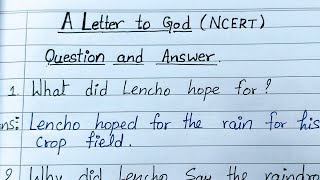 A Letter to God (NCERT)
Question and Answer.
1. What did Lencho hope for?
ns: Lencho hoped for the rain for his
crop field.
2 Why did Lencho Say the raindro